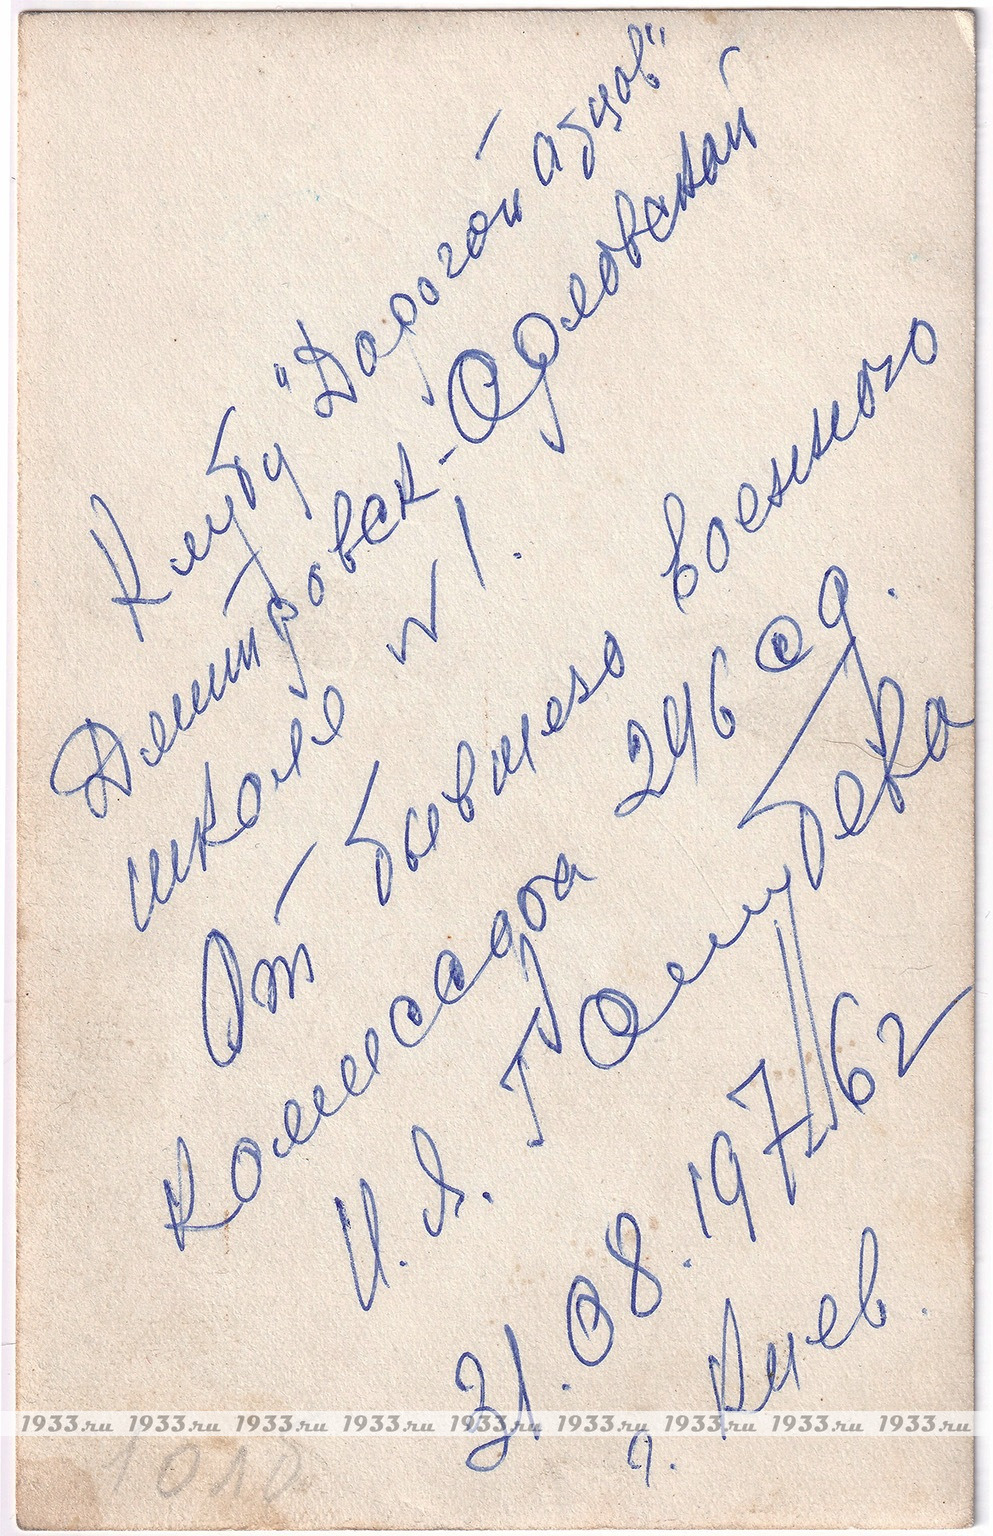 Клубу "Дорогой отцов"
Дмитровск-Орловской
школе N 1.
От бывшего военного
комиссара 246 сд.
И. Я. Голубева
31.08.1976 г
г. Киев.
1933.ru 1933.ru 1933.ru 1933.ru 1933.ru 1933.ru 1933.ru 1933.ru 1933.ru
1010